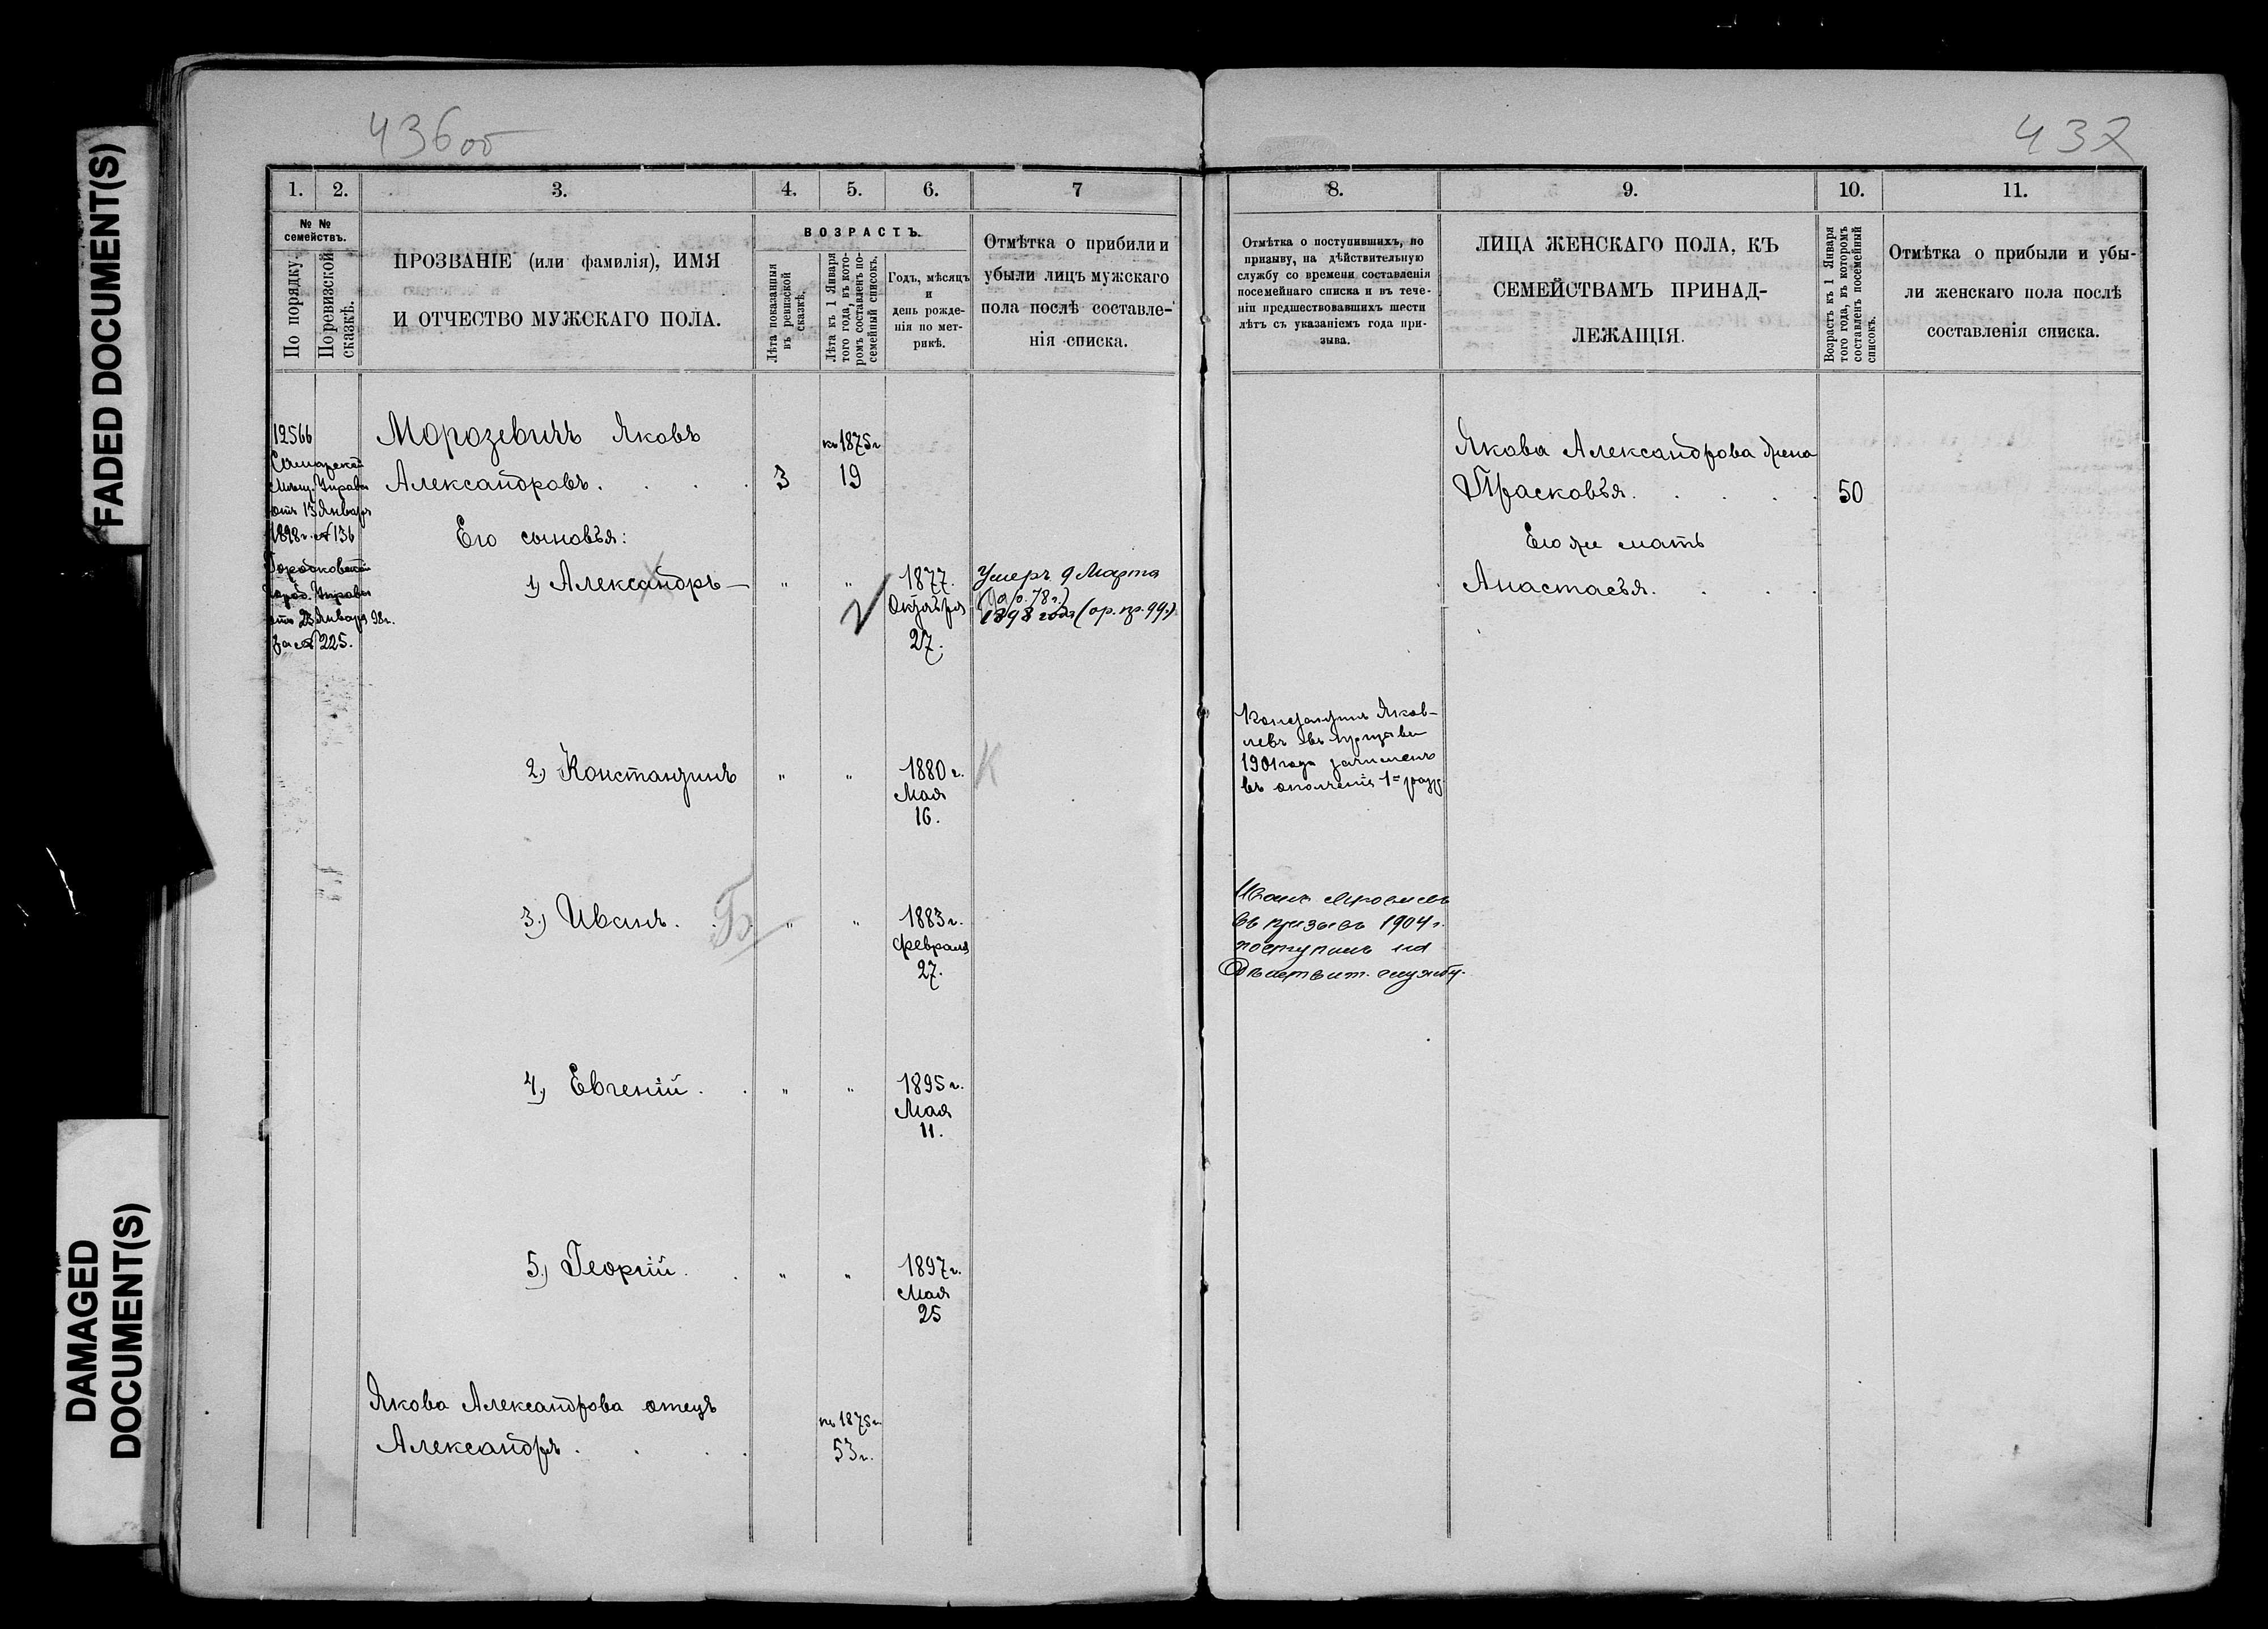 FADED DOCUMENT(S)
DAMAGED
DOCUMENT(S)
436об
1. 2. 3. 4. 5. 6. 7
№ №
семействъ.
По порядку.
По ревизской
сказкѣ.
ПРОЗВАНІЕ (или фамилія), ИМЯ
И ОТЧЕСТВО МУЖСКАГО ПОЛА.
ВОЗРАСТЪ.
Лѣта показанія
въ ревизской
сказкѣ.
Лѣта къ 1 Января
того года, въ кото-
ромъ составленъ по-
семейный списокъ.
Годъ, мѣсяцъ
и
день рожде-
нія по мет-
рикѣ.
Отмѣтка о прибыли и
убыли лицъ мужскаго
пола послѣ составле-
нія списка.
12566
Самарской
Мѣщ. Управы
отъ 13 Января
1898 г. № 136
Город. Управы
отъ 23 Января 98 г.
за № 225.
Морозевичъ Яковъ
къ 1875 г
Александровъ. 3 19
Его сыновья:
1) Александръ — " " 1877.
Октября
27.
Умеръ 9 Марта
1898 года (ор. пр. 99.)
2) Константинъ " " 1880 г. К
Мая
16.
3.) Иванъ. Б " " 1883 г.
Февраля
27.
4.) Евгеній. " " 1895 г.
Мая
11.
5.) Георгій. " " 1897 г.
Мая
25
Якова Александрова отецъ
къ 1875 г
Александръ. 53 г.
437
8. 9. 10. 11.
Отмѣтка о поступившихъ, по
призыву, на дѣйствительную
службу со времени составленія
посемейнаго списка и въ тече-
ніи предшествовавшихъ шести
лѣтъ съ указаніемъ года при-
зыва.
ЛИЦА ЖЕНСКАГО ПОЛА, КЪ
СЕМЕЙСТВАМЪ ПРИНАД-
ЛЕЖАЩІЯ.
Возрастъ къ 1 Января
того года, въ которомъ
составленъ посемейный
списокъ.
Отмѣтка о прибыли и убы-
ли женскаго пола послѣ
составленія списка.
Якова Александрова жена
Прасковья. 50
Его же мать
Анастасья.
Константинъ Яков-
левъ въ призывъ
1901 года зачисленъ
въ ополченіе 1го разр.
Иванъ Яковлевъ
въ призывъ 1904 г.
поступилъ на
Дѣйствит. службу.